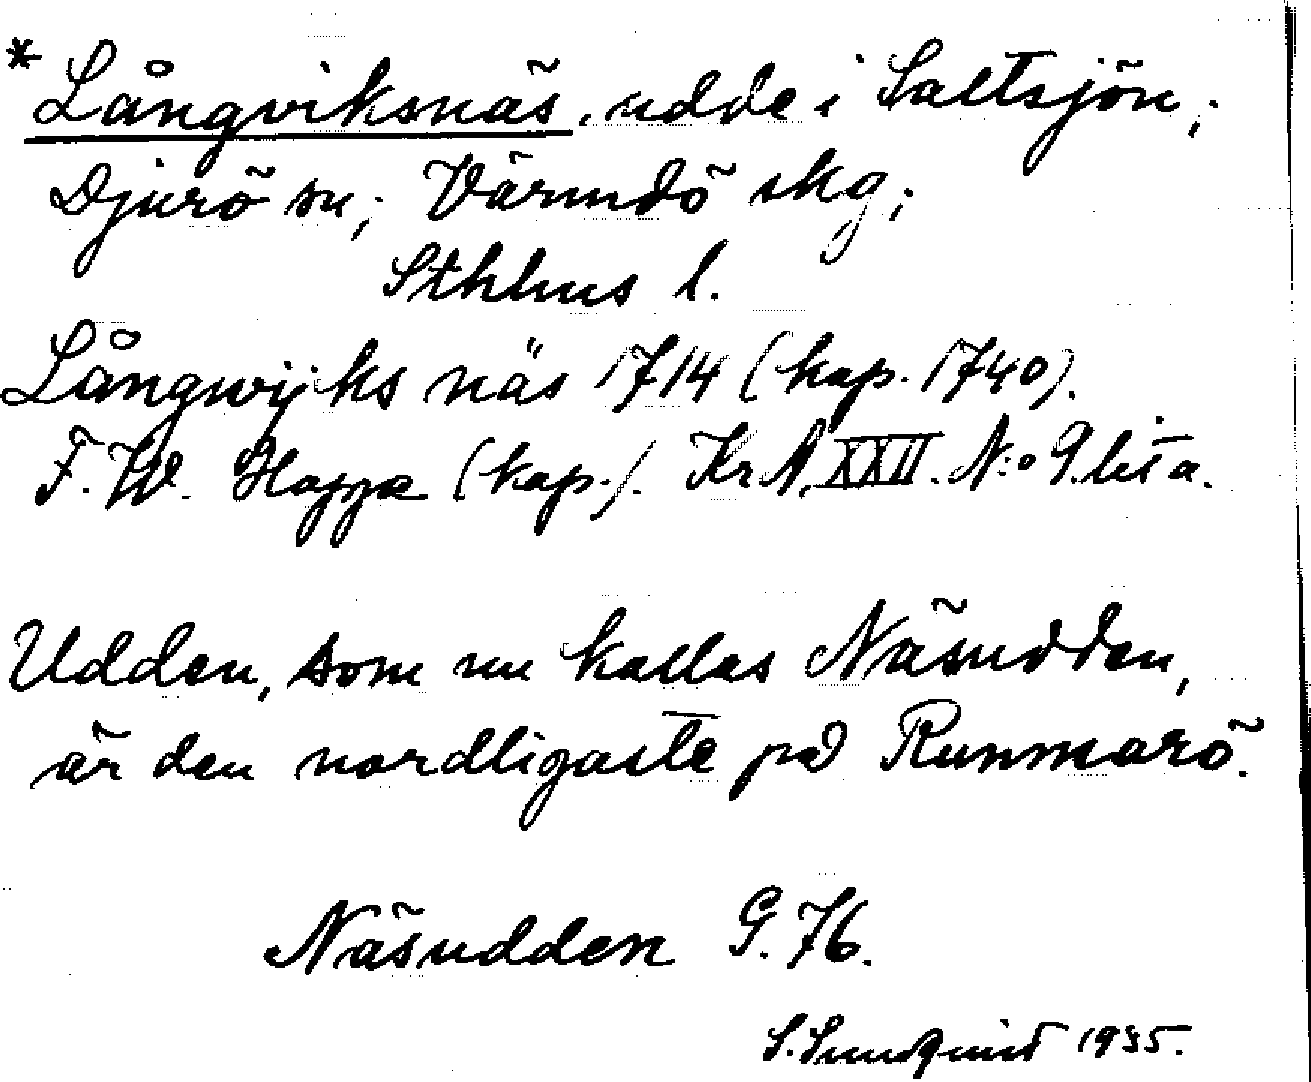 * Långviksnäs, udde i Saltsjön;
Djurö sn; Värmdö skg;
Sthlms l.
Långwijks näs 1714 (kop. 1740).
F. W. Hoppe (kop.). KrA, XXII. N:o 9. lit a.
Udden, som nu kallas Näsudden,
är den nordligaste på Runmarö.
Näsudden G. 76.
S. Sundquist 1935.